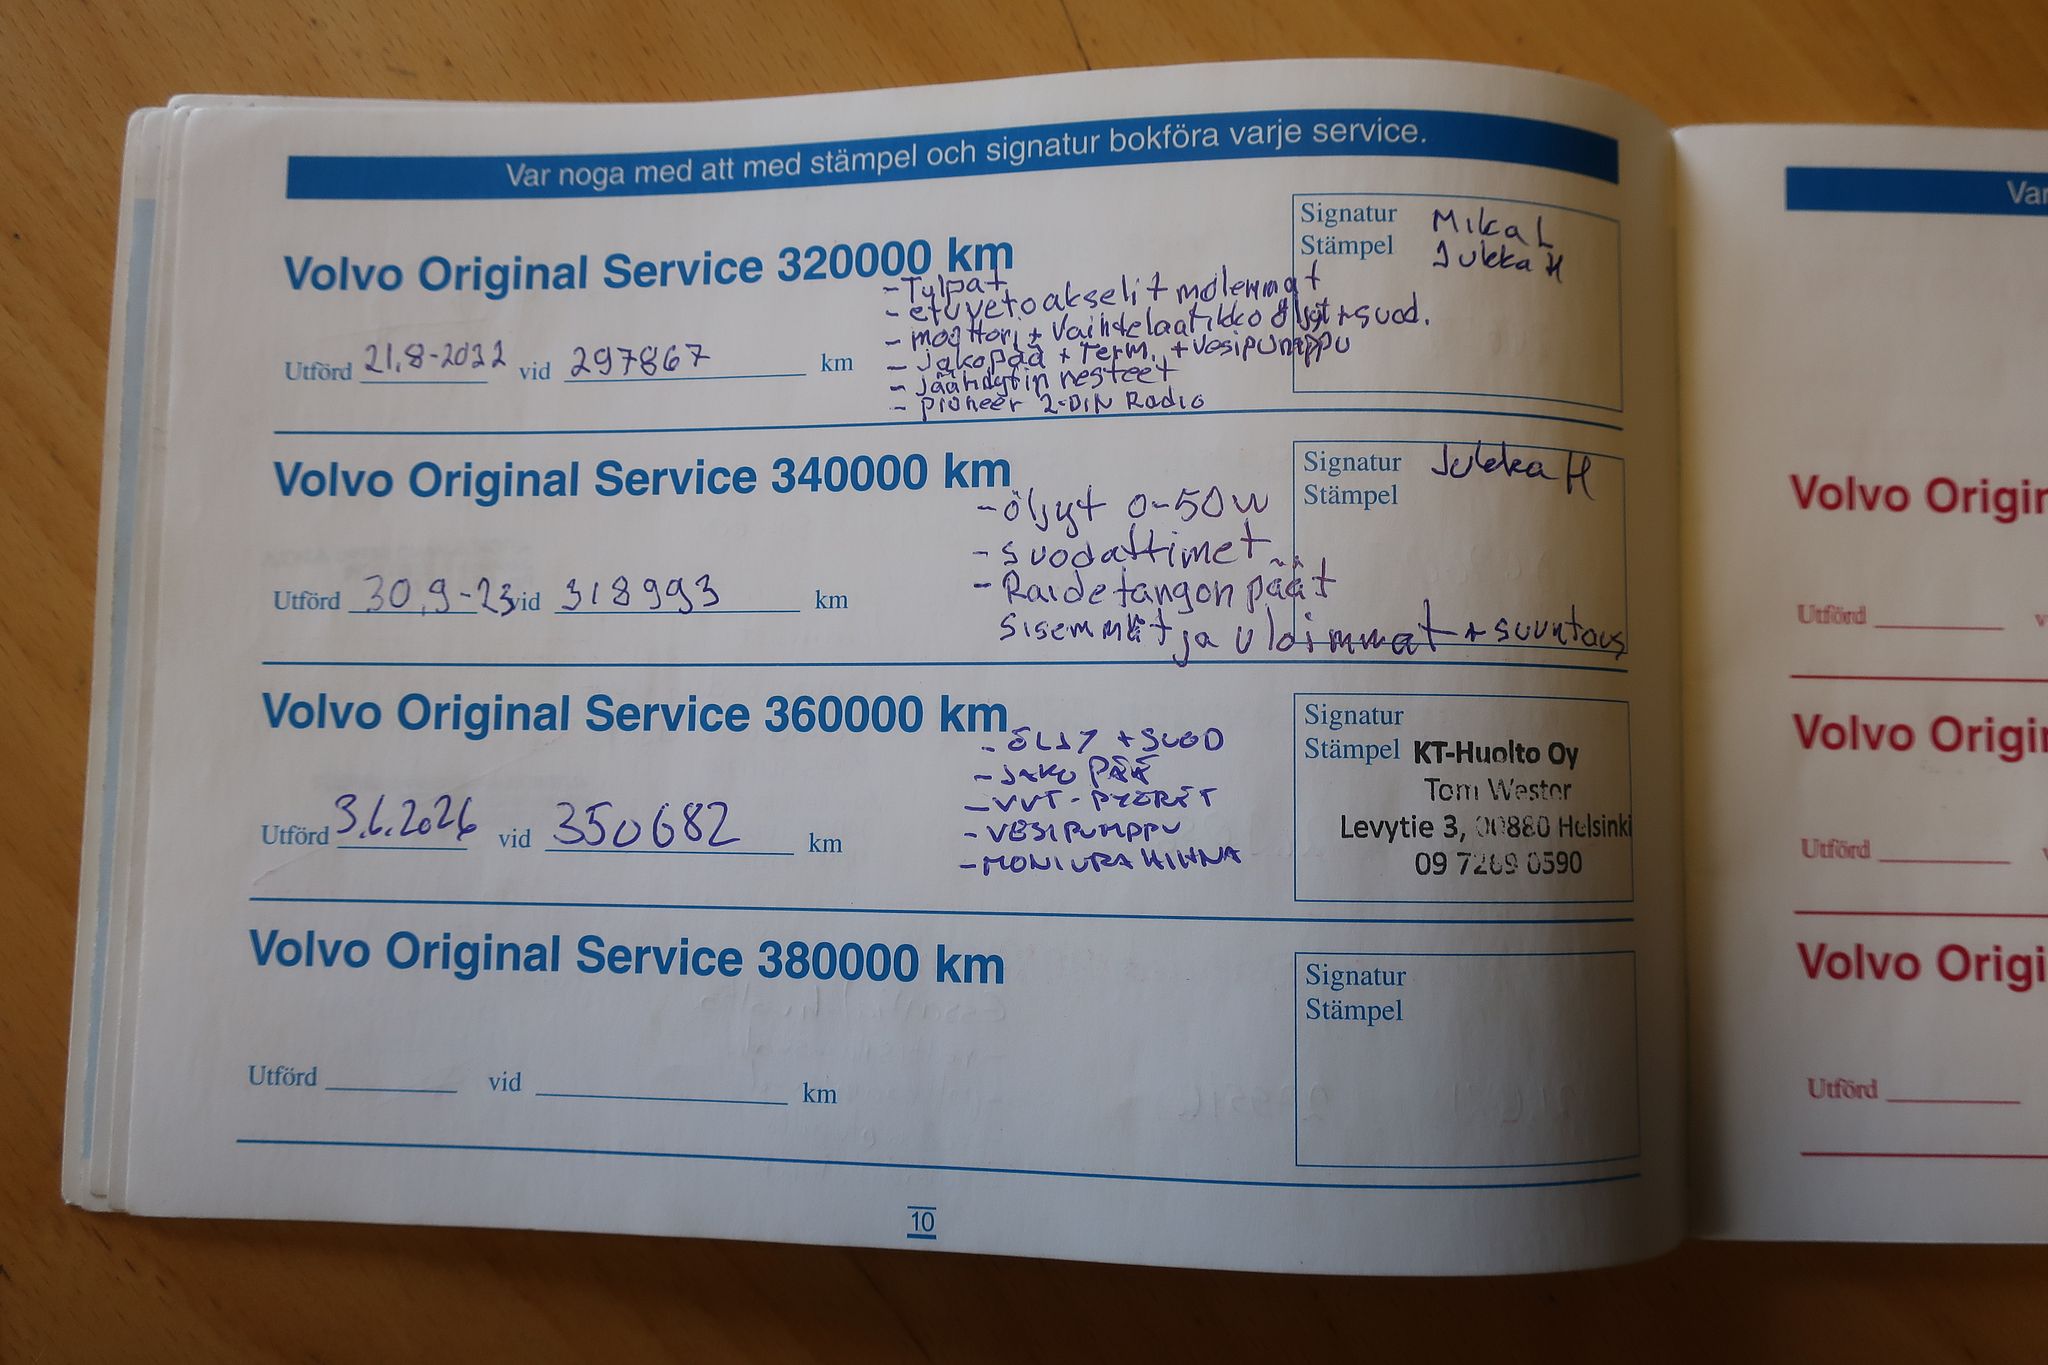 Var noga med att med stämpel och signatur bokföra varje service.
Volvo Original Service 320000 km
Utförd 21.8-2022 vid 297867 km
- Tulpat
- etuvetoakselit molemmat
- moottori + Vaihdelaatikko öljyt + suod.
- jakopää + Term. + vesipumppu
- jäähdytin nesteet
- pioneer 2-DIN Radio
Signatur Mika L
Stämpel Jukka H
Volvo Original Service 340000 km
Utförd 30.9-23 vid 318993 km
- öljyt 0-50W
- suodattimet
- Raidetangon päät
sisemmät ja uloimmat + suuntaus
Signatur Jukka H
Stämpel
Volvo Original Service 360000 km
Utförd 3.6.2026 vid 350682 km
- ÖLJY + SUOD
- JAKO PÄÄ
- VVT - PYÖRÄT
- VESIPUMPPU
- MONIURA HIHNA
Signatur
Stämpel KT-Huolto Oy
Tom Wester
Levytie 3, 00880 Helsinki
09 7269 0590
Volvo Original Service 380000 km
Utförd vid km
Signatur
Stämpel
10
Var
Volvo Origin
Utförd v
Volvo Origin
Utförd v
Volvo Origi
Utförd